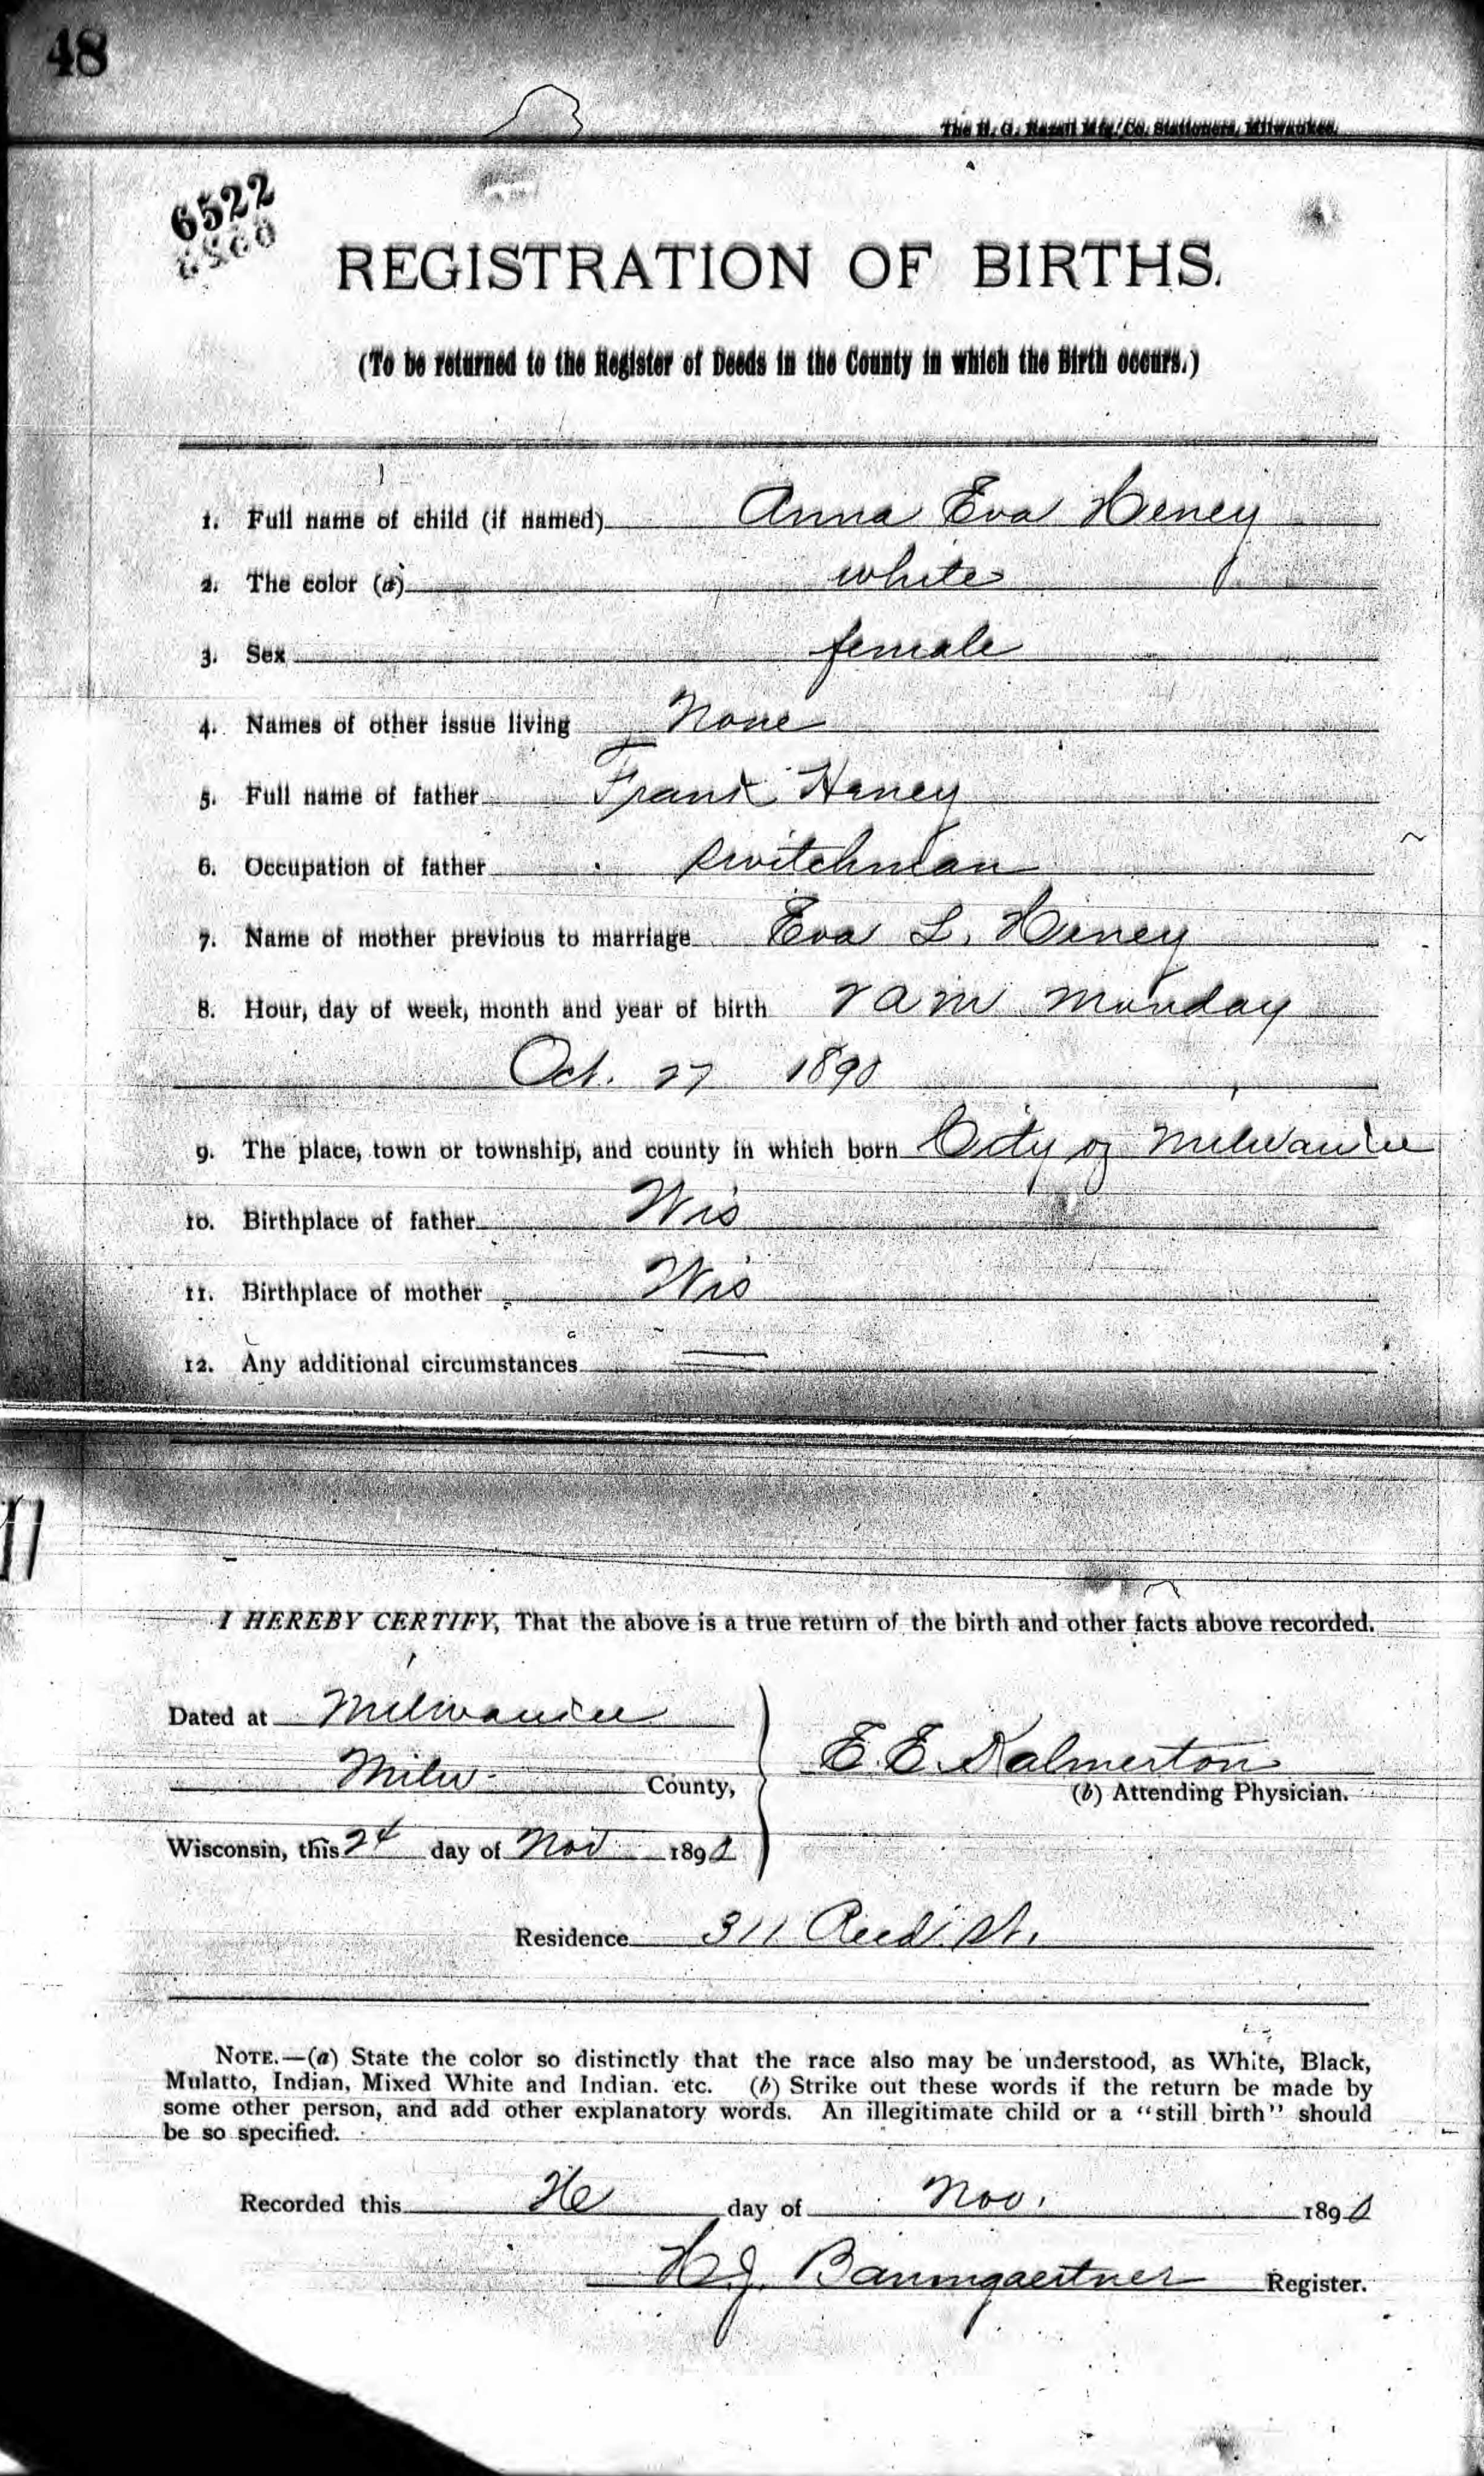 48
The H. G. Razall Mfg. Co. Stationers, Milwaukee.
6522
REGISTRATION OF BIRTHS.
(To be returned to the Register of Deeds in the County in which the Birth occurs.)
1. Full name of child (if named) Anna Eva Heney
2. The color (a) white
3. Sex female
4. Names of other issue living None
5. Full name of father Frank Heney
6. Occupation of father switchman
7. Name of mother previous to marriage Eva L. Heney
8. Hour, day of week, month and year of birth am Monday
Oct. 27 1890
9. The place, town or township, and county in which born City of Milwaukee
10. Birthplace of father Wis
11. Birthplace of mother Wis
12. Any additional circumstances
I HEREBY CERTIFY, That the above is a true return of the birth and other facts above recorded.
Dated at Milwaukee
Milw County,
E. E. Kalmerton
(b) Attending Physician.
Wisconsin, this 24 day of Nov 1890
Residence 311 Reed St.
NOTE.—(a) State the color so distinctly that the race also may be understood, as White, Black,
Mulatto, Indian, Mixed White and Indian. etc. (b) Strike out these words if the return be made by
some other person, and add other explanatory words. An illegitimate child or a "still birth" should
be so specified.
Recorded this day of Nov. 1890
H.J. Baumgaertner Register.